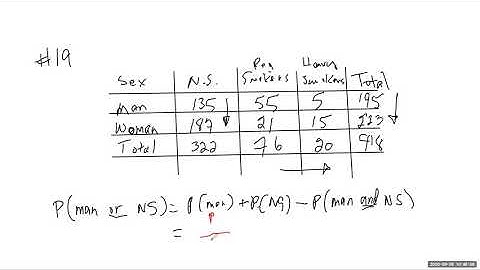 #19
Sex N.S. Reg Smokers Heavy Smokers Total
man 135 55 5 195
Woman 187 21 15 223
Total 322 76 20 418
P(man or NS) = P(man) + P(NS) - P(man and NS)
= P